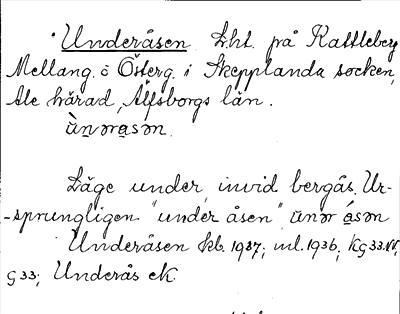 Underåsen L.ht. på Kattleberg
Mellang. o Österg. i Skepplanda socken,
Ale härad, Älfsborgs län.
ùn̲əra̲sən.
Läge under, invid bergås. Ur-
-sprungligen "under åsen" ūnər ásən
Underåsen kb. 1937; ml. 1936, KG33.
G33; Underås ek.